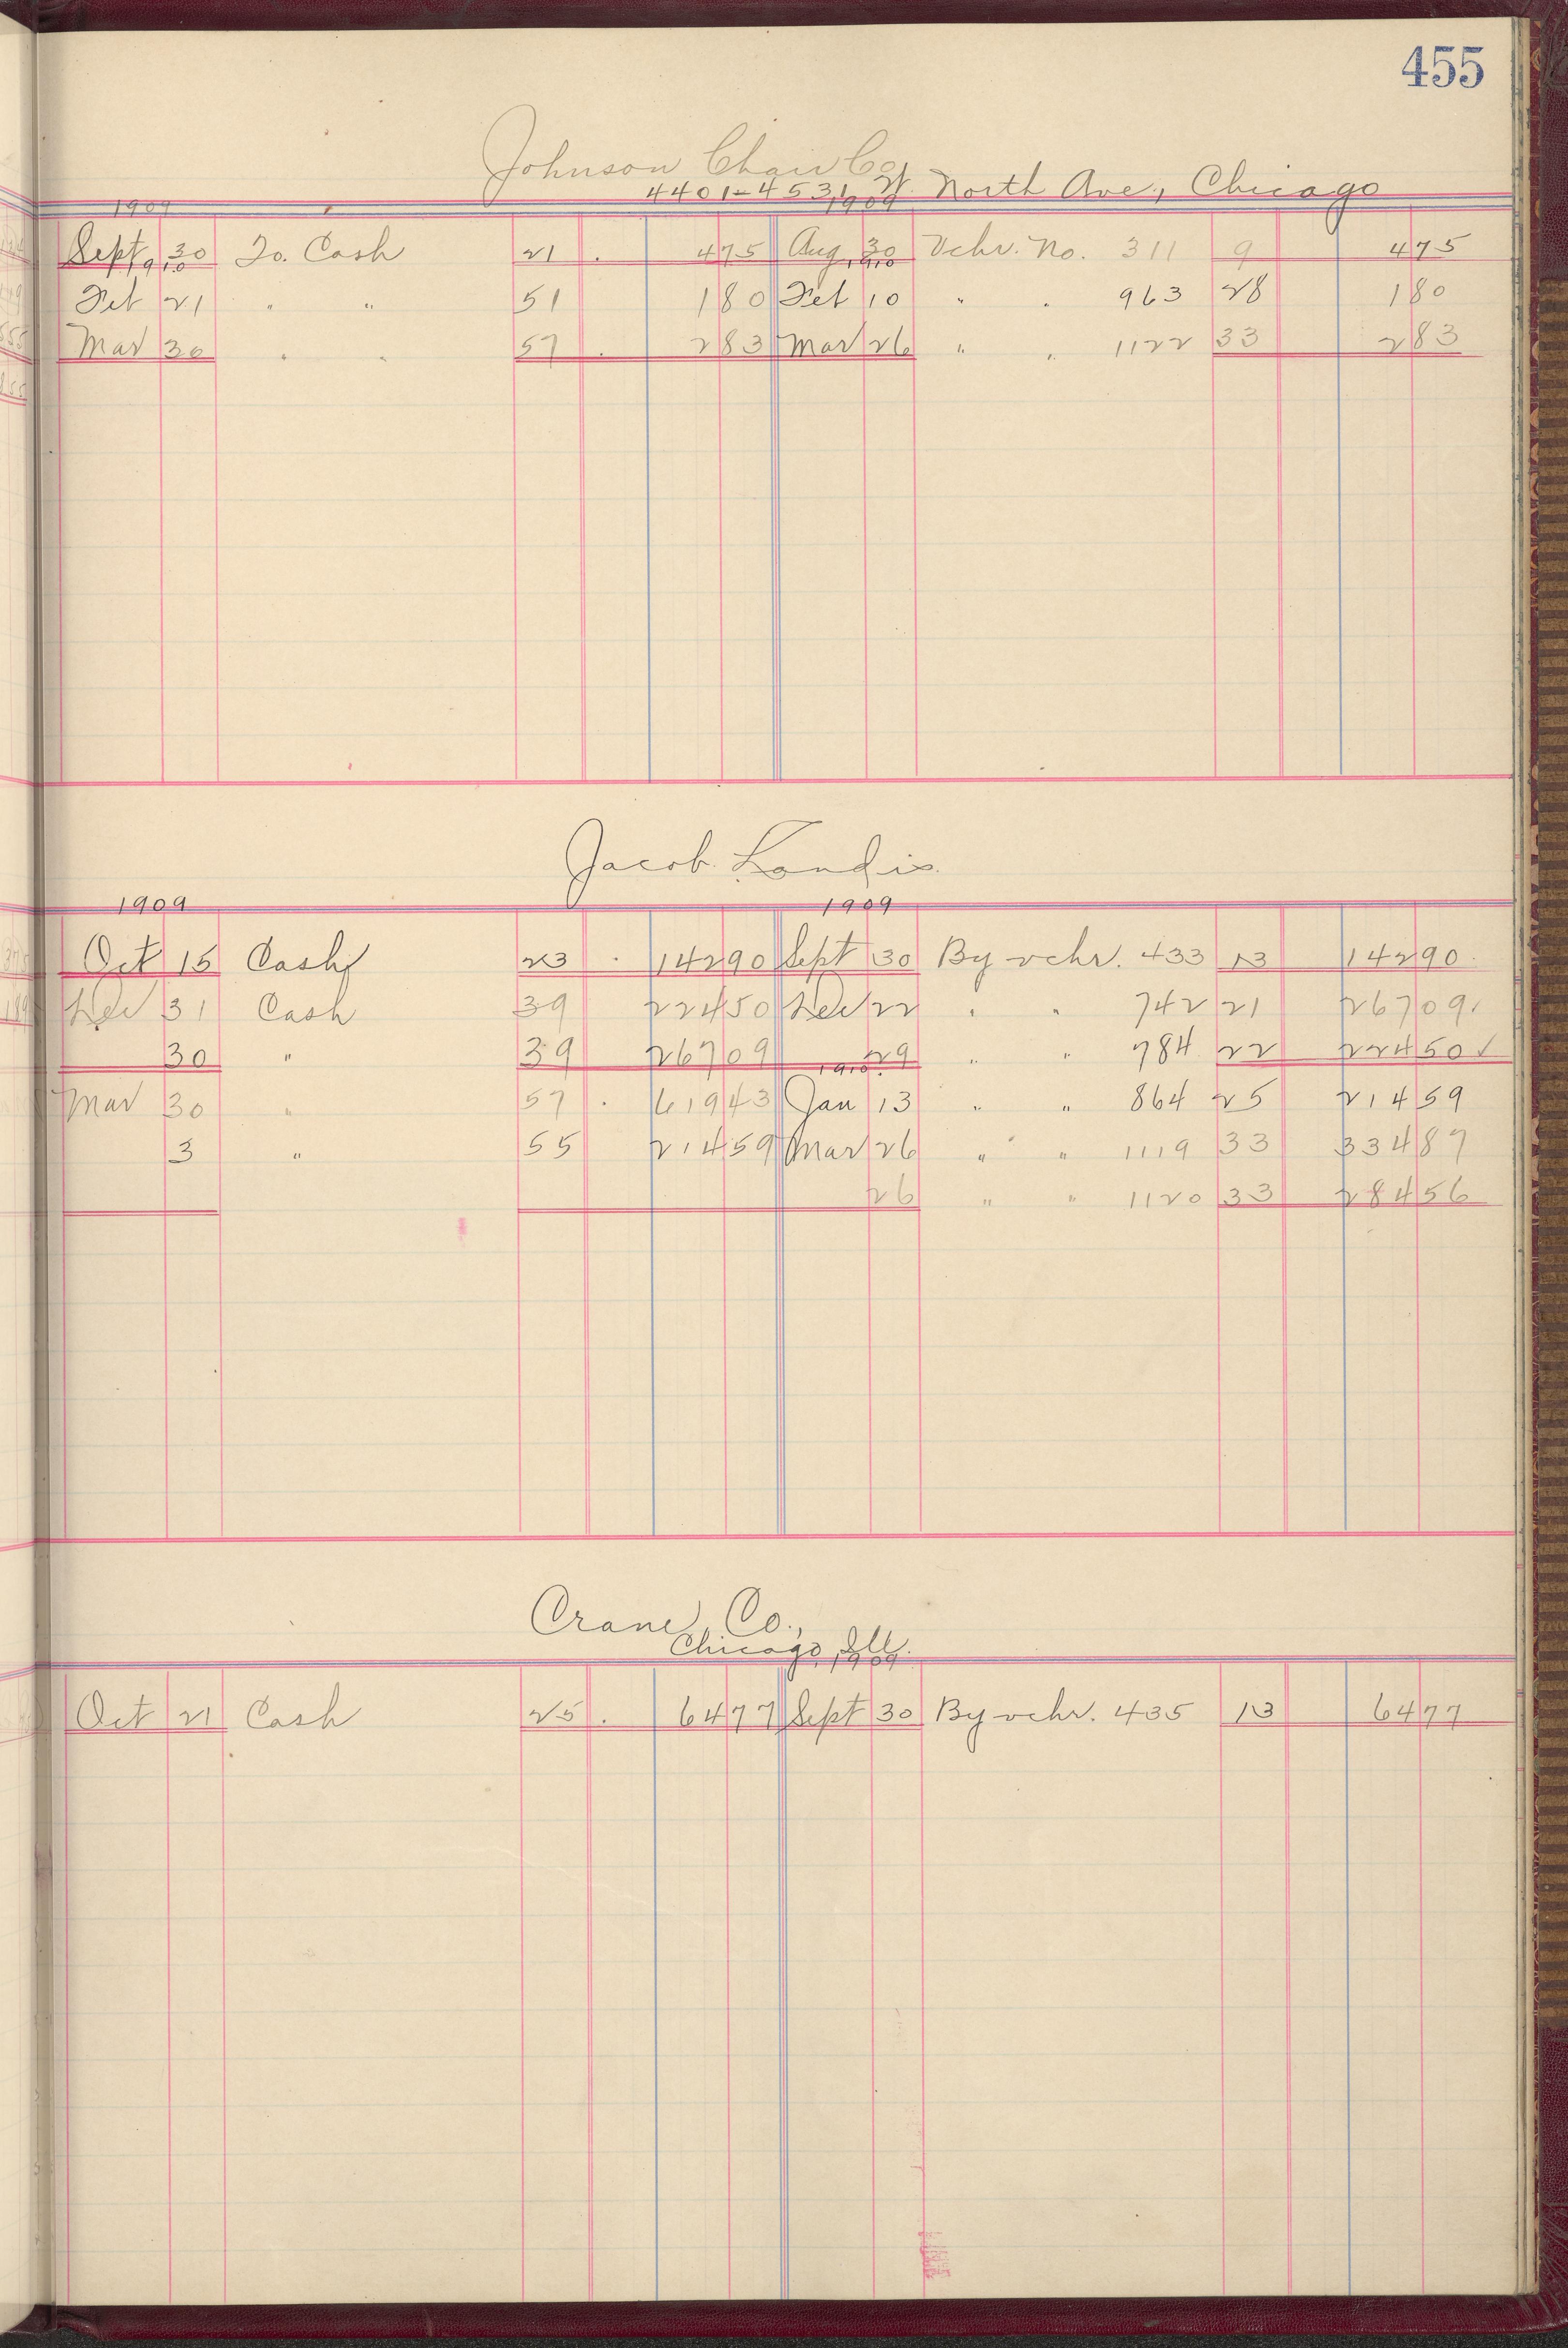 455
Johnson Chair Co.
4401-4531 W. North Ave., Chicago
1909 1909
Sept 30 To. Cash 21 . 475 Aug 30 Vchr. No. 311 9 475
1910 1910
Feb 21 " " 51 180 Feb 10 " " 963 28 180
Mar 30 " " 57 . 283 Mar 26 " " 1122 33 283
Jacob Landis
1909 1909
Oct 15 Cash 23 . 14290 Sept 30 By vchr. 433 13 14290
Dec 31 Cash 39 22450 Dec 22 " " 742 21 26709
30 " 39 26709 29 " " 784 22 22450 ✓
1910
Mar 30 " 57 . 61943 Jan 13 " " 864 25 21459
3 " 55 21459 Mar 26 " " 1119 33 33487
26 " " 1120 33 28456
Crane Co.,
Chicago, Ill.
1909
Oct 21 Cash 25 . 6477 Sept 30 By vchr. 435 13 6477